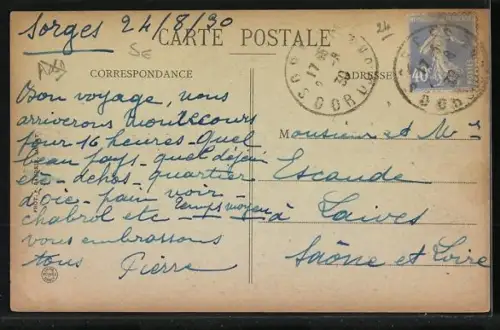 Sorges 24/8/30
24
CARTE POSTALE
CORRESPONDANCE
ADRESSE
40
Bon voyage, nous
arriverons
pour 16 heures - Quel
beau pays - quel
quartier
d'oie - pain noir -
chabrol etc - Temps moyen
vous embrassons
tous Pierre
Monsieur et Me
Escande
à Laives
Saône et Loire